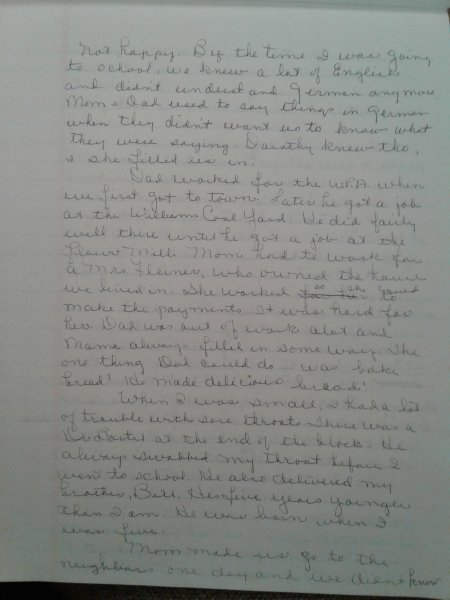 not happy. By the time I was going
to school, we knew a lot of English
and didn't understand German anymore.
Mom & Dad used to say things in German
when they didn't want us to know what
they were saying. Dorothy knew tho,
& she filled us in.
Dad worked for the W.P.A. when
we first got to town. Later he got a job
at the Williams Coal Yard. He did fairly
well there until he got a job at the
Flour Mill. Mom had to work for
a Mrs Fleiner, who owned the house
we lived in. She worked so she could
make the payments. It was hard for
her. Dad was out of work alot and
Mama always filled in some way. The
one thing Dad could do - was bake
bread! He made delicious bread!
When I was small, I had a lot
of trouble with sore throats. There was a
Dr at the end of the block. He
always swabbed my throat before I
went to school. He also delivered my
brother, Bill. He's five years younger
than I am. He was born when I
was five.
Mom made us go to the
neighbors one day and we didn't know